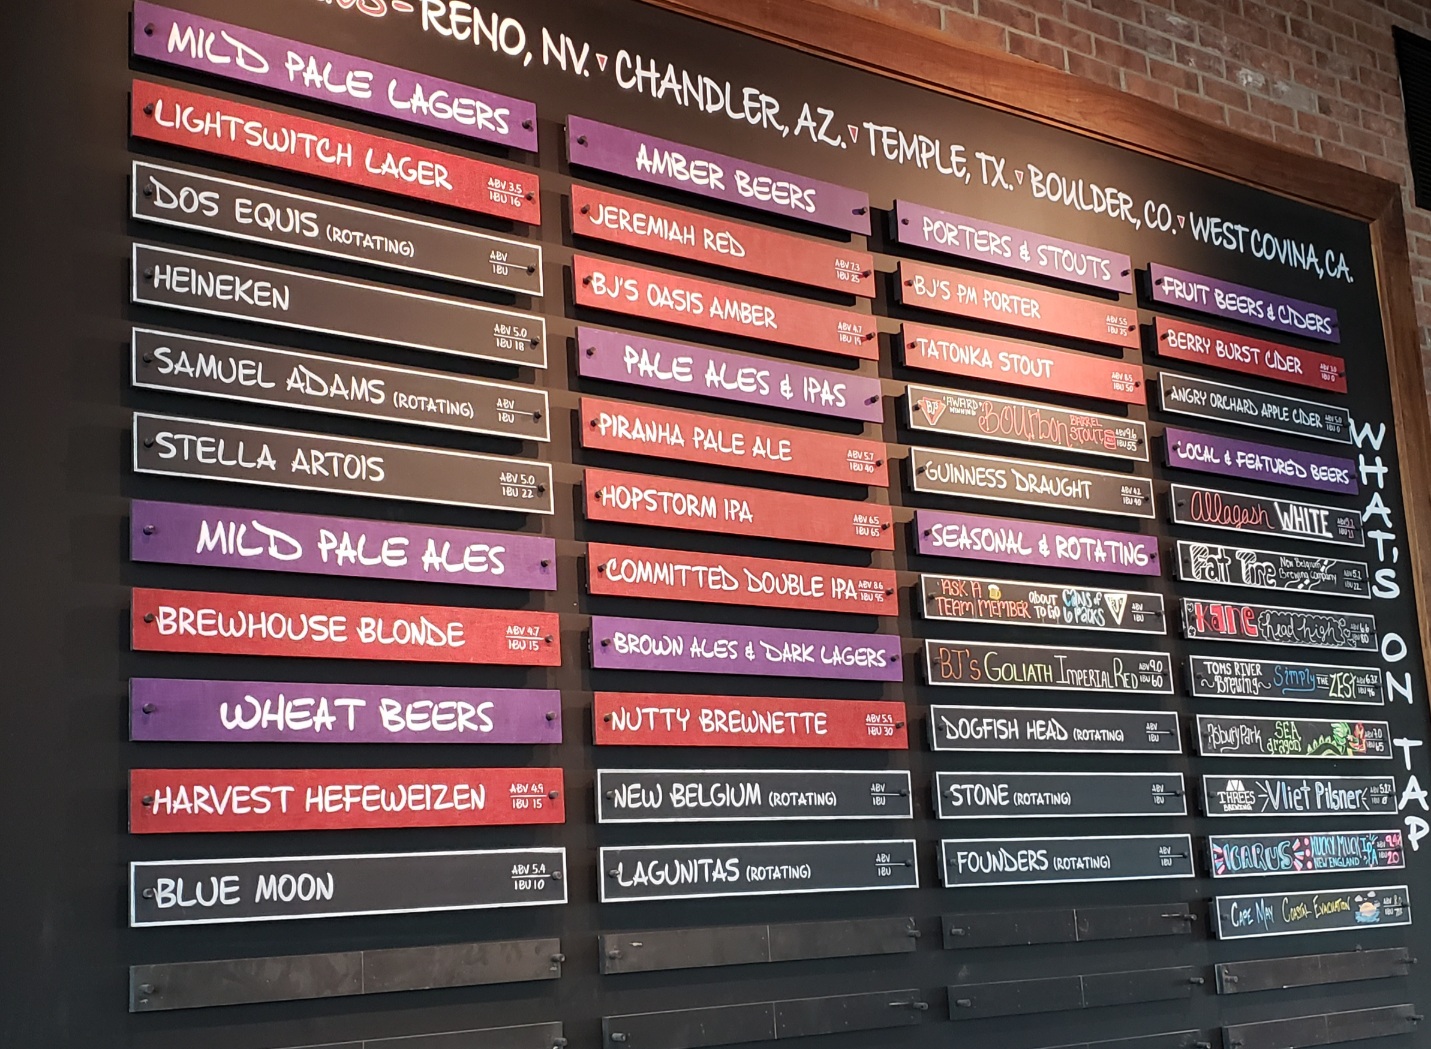 RENO, NV. CHANDLER, AZ. TEMPLE, TX. BOULDER, CO. WEST COVINA, CA.
MILD PALE LAGERS
LIGHTSWITCH LAGER ABV 3.5 IBU 16
DOS EQUIS (ROTATING) ABV IBU
HEINEKEN ABV 5.0 IBU 18
SAMUEL ADAMS (ROTATING) ABV IBU
STELLA ARTOIS ABV 5.0 IBU 22
MILD PALE ALES
BREWHOUSE BLONDE ABV 4.7 IBU 15
WHEAT BEERS
HARVEST HEFEWEIZEN ABV 4.9 IBU 15
BLUE MOON ABV 5.4 IBU 10
AMBER BEERS
JEREMIAH RED ABV 7.3 IBU 25
BJ'S OASIS AMBER ABV 4.7 IBU
PALE ALES & IPAS
PIRANHA PALE ALE ABV 5.7 IBU 40
HOPSTORM IPA ABV 6.5 IBU 65
COMMITTED DOUBLE IPA ABV 8.6 IBU 95
BROWN ALES & DARK LAGERS
NUTTY BREWNETTE ABV 5.9 IBU 30
NEW BELGIUM (ROTATING) ABV IBU
LAGUNITAS (ROTATING) ABV IBU
PORTERS & STOUTS
BJ'S PM PORTER ABV 5.5 IBU
TATONKA STOUT ABV IBU 50
BJ'S "AWARD WINNING" BOURBON BARREL STOUT ABV 9.6 IBU 55
GUINNESS DRAUGHT ABV 4.2 IBU 40
SEASONAL & ROTATING
ASK A TEAM MEMBER ABOUT CANS & 6 PACKS TO GO ABV IBU
BJ'S GOLIATH IMPERIAL RED ABV 9.0 IBU 60
DOGFISH HEAD (ROTATING) ABV IBU
STONE (ROTATING) ABV IBU
FOUNDERS (ROTATING) ABV IBU
FRUIT BEERS & CIDERS
BERRY BURST CIDER ABV IBU 0
ANGRY ORCHARD APPLE CIDER ABV 5.0 IBU 0
LOCAL & FEATURED BEERS
Allagash WHITE
Fat Tire New Belgium Brewing Company
Kane head high
TOMS RIVER Brewing Simply THE ZEST
Asbury Park SEA dragon
THREES BREWING Vliet Pilsner
ICARUS YUCKY MUCK NEW ENGLAND IPA
CAPE MAY COASTAL EVACUATION
WHAT'S ON TAP